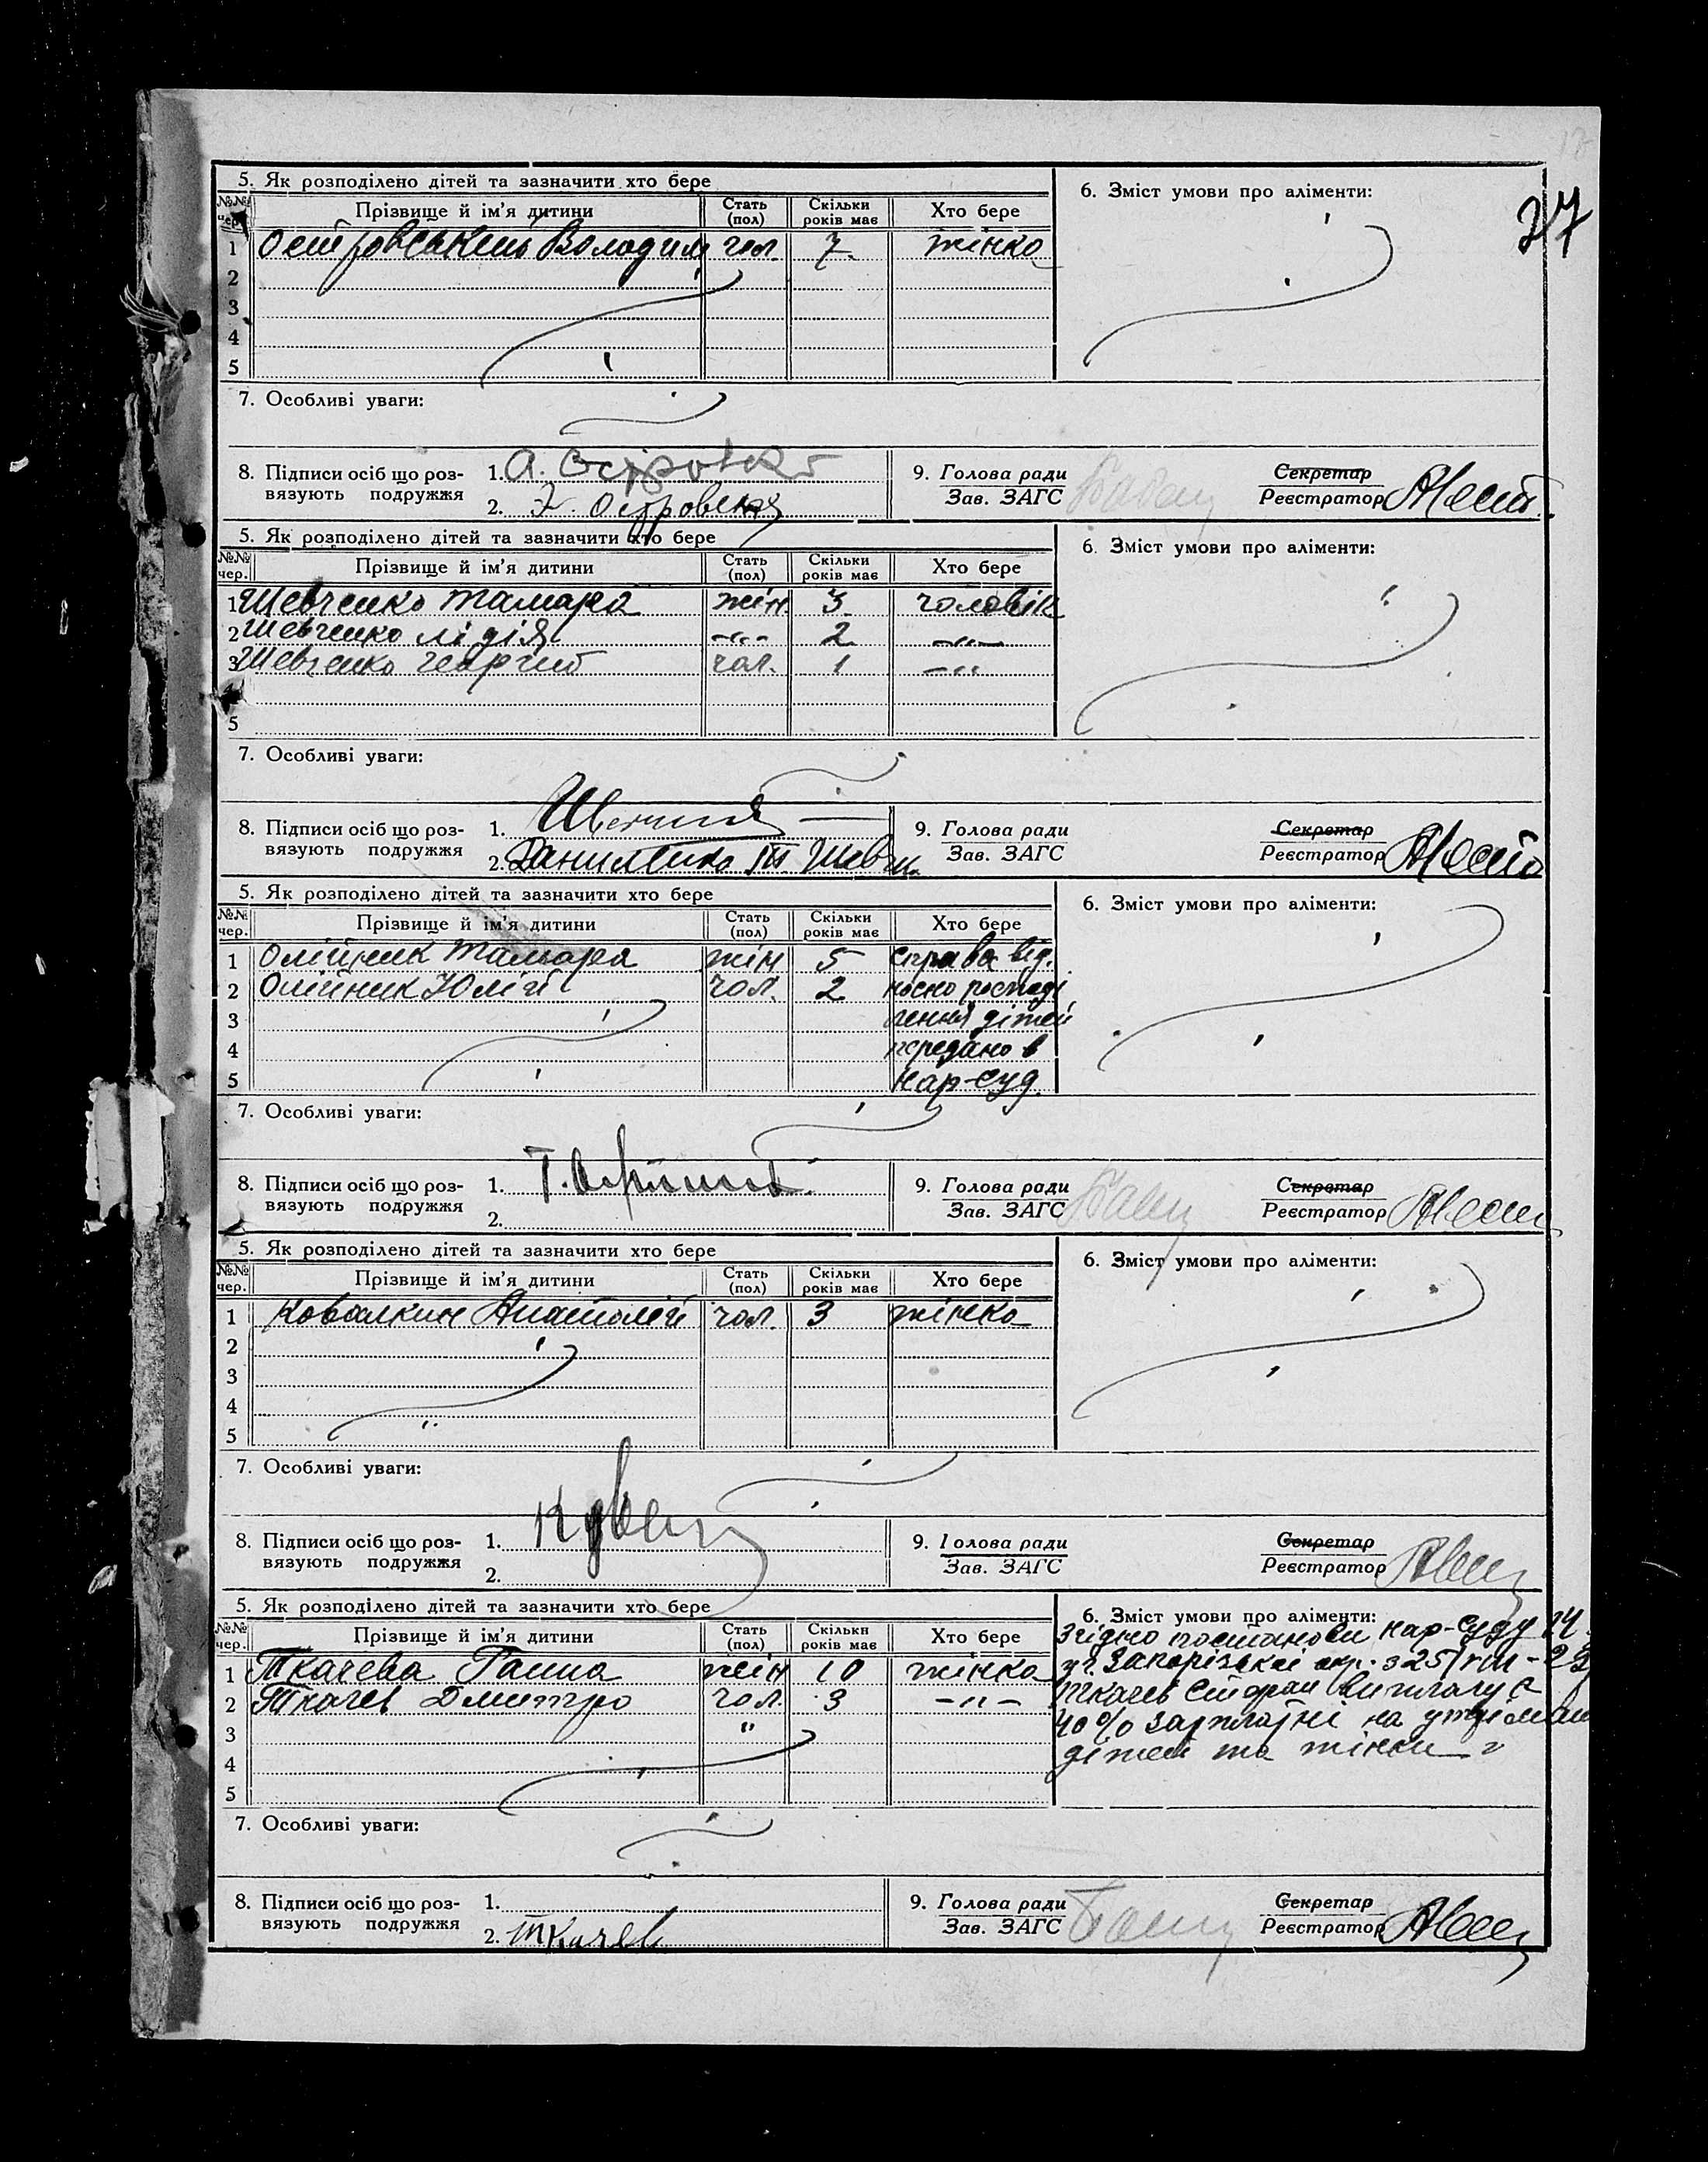 27
5. Як розподілено дітей та зазначити хто бере
6. Зміст умови про аліменти:
№№ чер. Прізвище й ім'я дитини Стать (пол) Скільки років має Хто бере
1 Островський Володим чол. 7. жінка
2
3
4
5
7. Особливі уваги:
8. Підписи осіб що роз-
вязують подружжя
1. А. Островск
2. Х. Островская
9. Голова ради
Зав. ЗАГС
Секретар
Реєстратор
5. Як розподілено дітей та зазначити хто бере
6. Зміст умови про аліменти:
№№ чер. Прізвище й ім'я дитини Стать (пол) Скільки років має Хто бере
1 Шевченко Тамара жін. 3 чоловік
2 Шевченко Лідія -"- 2 -"-
3 Шевченко Георгий чол. 1 -"-
5
7. Особливі уваги:
8. Підписи осіб що роз-
вязують подружжя
1.
2.
9. Голова ради
Зав. ЗАГС
Секретар
Реєстратор
5. Як розподілено дітей та зазначити хто бере
6. Зміст умови про аліменти:
№№ чер. Прізвище й ім'я дитини Стать (пол) Скільки років має Хто бере
1 Олійник Тамара жін 5 справа від.
2 Олійник Юлій чол. 2 носно росподі
3 лення дітей
4 передано в
5 Нар-суд.
7. Особливі уваги:
8. Підписи осіб що роз-
вязують подружжя
1.
2.
9. Голова ради
Зав. ЗАГС
Секретар
Реєстратор
5. Як розподілено дітей та зазначити хто бере
6. Зміст умови про аліменти:
№№ чер. Прізвище й ім'я дитини Стать (пол) Скільки років має Хто бере
1 Ковалкин Анатолій чол. 3 жінка
2
3
4
5
7. Особливі уваги:
8. Підписи осіб що роз-
вязують подружжя
1.
2.
9. Голова ради
Зав. ЗАГС
Секретар
Реєстратор
5. Як розподілено дітей та зазначити хто бере
6. Зміст умови про аліменти:
№№ чер. Прізвище й ім'я дитини Стать (пол) Скільки років має Хто бере
1 Ткачева Ганна жін 10 жінка
2 Ткачев Дмитро чол. 3 -"-
3
4
5
Згідно постанови нар-суду 14
Запорізької окр. з 25
Ткачев виплачує
40% зарплатні на
дітей та жінки
7. Особливі уваги:
8. Підписи осіб що роз-
вязують подружжя
1.
2. Ткачев
9. Голова ради
Зав. ЗАГС
Секретар
Реєстратор